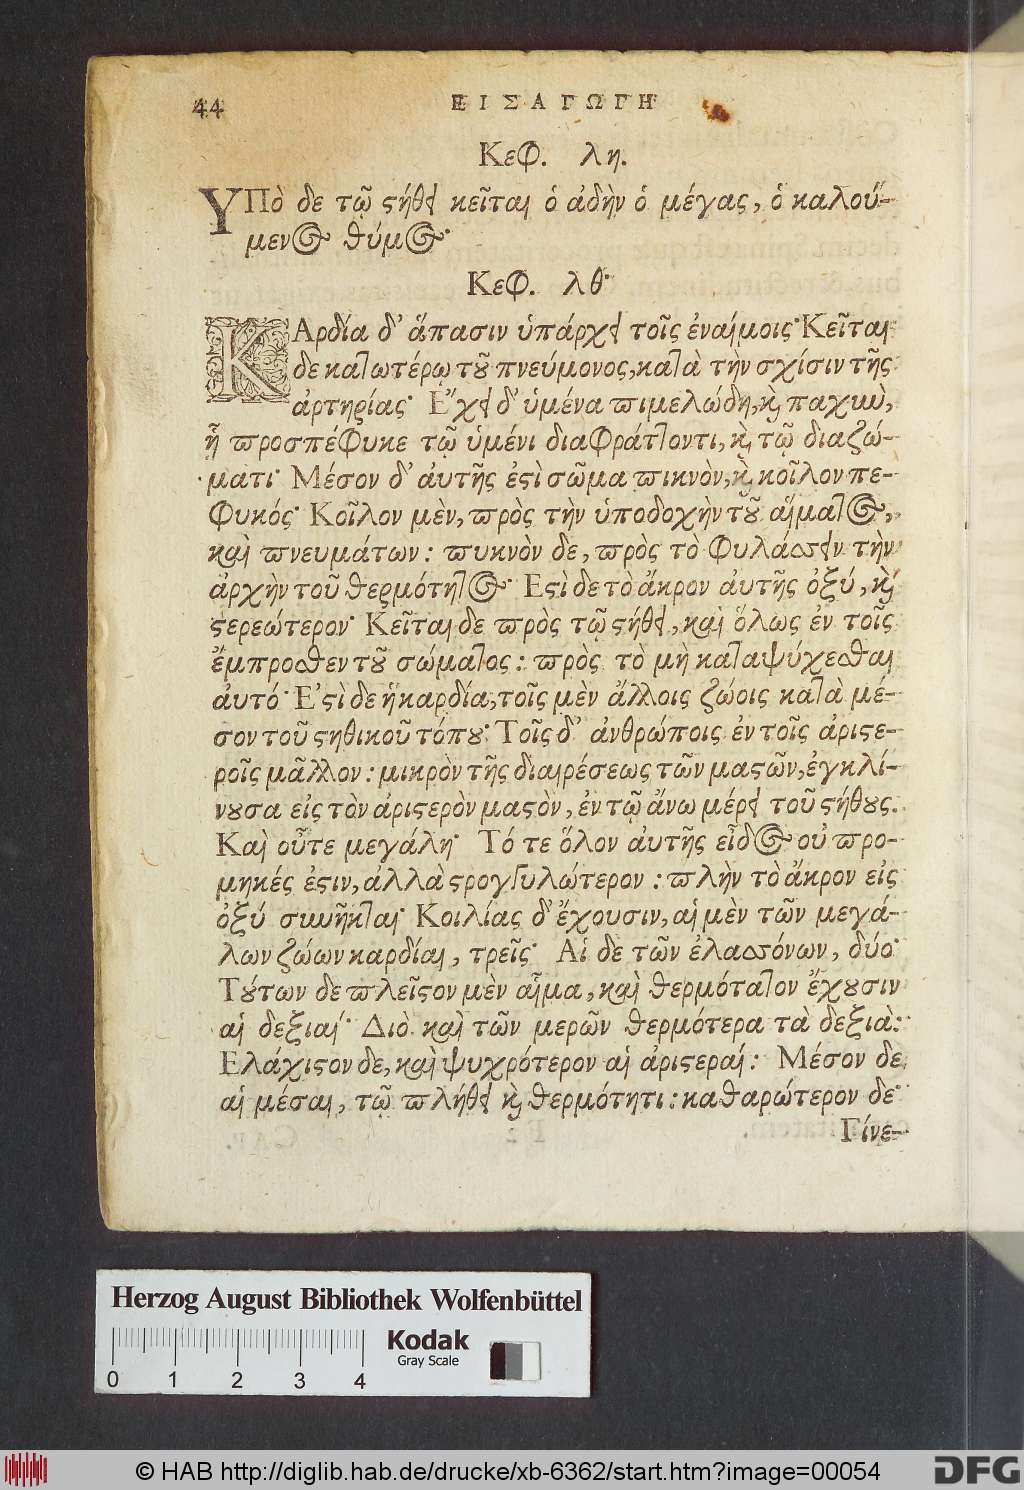 44
ΕΙΣΑΓΩΓΗ
Κεφ. λη.
ΥΠὸ δε τῷ ϛήθει κεῖται ὁ ἀδὴν ὁ μέγας, ὁ καλού-
μενος θύμος·
Κεφ. λθ·
ΚΑρδία δ' ἅπασιν ὑπάρχει τοῖς ἐναίμοις· Κεῖται
δε κατωτέρω τοῦ πνεύμονος, κατὰ τὴν σχίσιν τῆς
ἀρτηρίας· Ἔχει δ' ὑμένα πιμελώδη, καὶ παχὺν,
ᾗ προσπέφυκε τῷ ὑμένι διαφράττοντι, καὶ τῷ διαζώ-
ματι· Μέσον δ' ἀυτῆς ἐϛὶ σῶμα πικνὸν, καὶ κοῖλον πε-
φυκός· Κοῖλον μὲν, πρὸς τὴν ὑποδοχὴν τοῦ αἵματος,
καὶ πνευμάτων: πυκνὸν δε, πρὸς τὸ φυλάσσειν τὴν
ἀρχὴν τοῦ θερμότητος· Εϛὶ δε τὸ ἄκρον ἀυτῆς ὀξύ, καὶ
ϛερεώτερον· Κεῖται δε πρὸς τῷ ϛήθει, καὶ ὅλως ἐν τοῖς
ἔμπροσθεν τοῦ σώματος: πρὸς τὸ μὴ καταψύχεσθαι
ἀυτό· Ἐϛὶ δε ἡ καρδία, τοῖς μὲν ἄλλοις ζώοις κατὰ μέ-
σον τοῦ ϛηθικοῦ τόπου· Τοῖς δ' ἀνθρώποις ἐν τοῖς ἀριϛε-
ροῖς μᾶλλον: μικρὸν τῆς διαιρέσεως τῶν μαϛῶν, ἐγκλί-
νουσα εἰς τὸν ἀριϛερὸν μαϛὸν, ἐν τῷ ἄνω μέρει τοῦ ϛήθους.
Καὶ οὖτε μεγάλη· Τό τε ὅλον ἀυτῆς εἶδος οὐ προ-
μηκές ἐϛιν, ἀλλὰ ϛρογγυλώτερον: πλὴν τὸ ἄκρον εἰς
ὀξύ συνῆκται· Κοιλίας δ' ἔχουσιν, αἱ μὲν τῶν μεγά-
λων ζώων καρδίαι, τρεῖς· Αἱ δε τῶν ἐλασσόνων, δύο·
Τούτων δε πλεῖϛον μὲν αἷμα, καὶ θερμότατον ἔχουσιν
αἱ δεξιαί· Διὸ καὶ τῶν μερῶν θερμότερα τὰ δεξιὰ:
Ελάχιϛον δε, καὶ ψυχρότερον αἱ ἀριϛεραί: Μέσον δε
αἱ μέσαι, τῷ πλήθει καὶ θερμότητι: καθαρώτερον δε·
Γίνε-
Herzog August Bibliothek Wolfenbüttel
Kodak
Gray Scale
0 1 2 3 4
© HAB http://diglib.hab.de/drucke/xb-6362/start.htm?image=00054
DFG